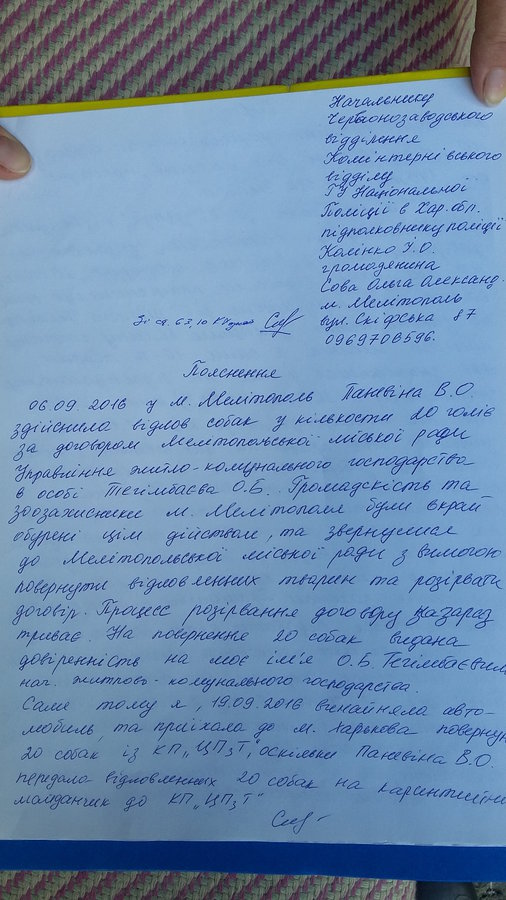 Начальнику
Червонозаводського
відділення
Комінтернівського
відділу
ГУ Національної
Поліції в Хар. обл.
підполковнику поліції
Колінко І.О.
громадянина
Сова Ольга Олександ.
м. Мелітополь
вул. Скіфська 87
0969708596.
Зі ст. 63, 10 КУ
Пояснення
06.09.2016 у м. Мелітополь Паневіна В.О.
здійснила відлов собак у кількости 20 голів
за договором Мелітопольської міської ради
Управління житло-комунального господарства
в особі Тегімбаєва О.Б.. Громадскість та
зоозахисники м. Мелітополя були вкрай
обурені цім дійством, та звернулися
до Мелітопольської міської ради з вимогою
повернути відловленних тварин та розірвати
договір. Процесс розірвання договору назараз
триває. На повернення 20 собак видана
довіренність на моє ім'я О.Б. Тегімбаєвим
нач. житлово-комунального господарства.
Саме тому я, 19.09.2016 винайняла авто-
мобиль, та приїхала до м. Харькова повернут
20 собак із КП „ЦПзТ", оскільки Паневіна В.О.
передала відловленних 20 собак на карантинний
майданчик до КП „ЦПзТ"